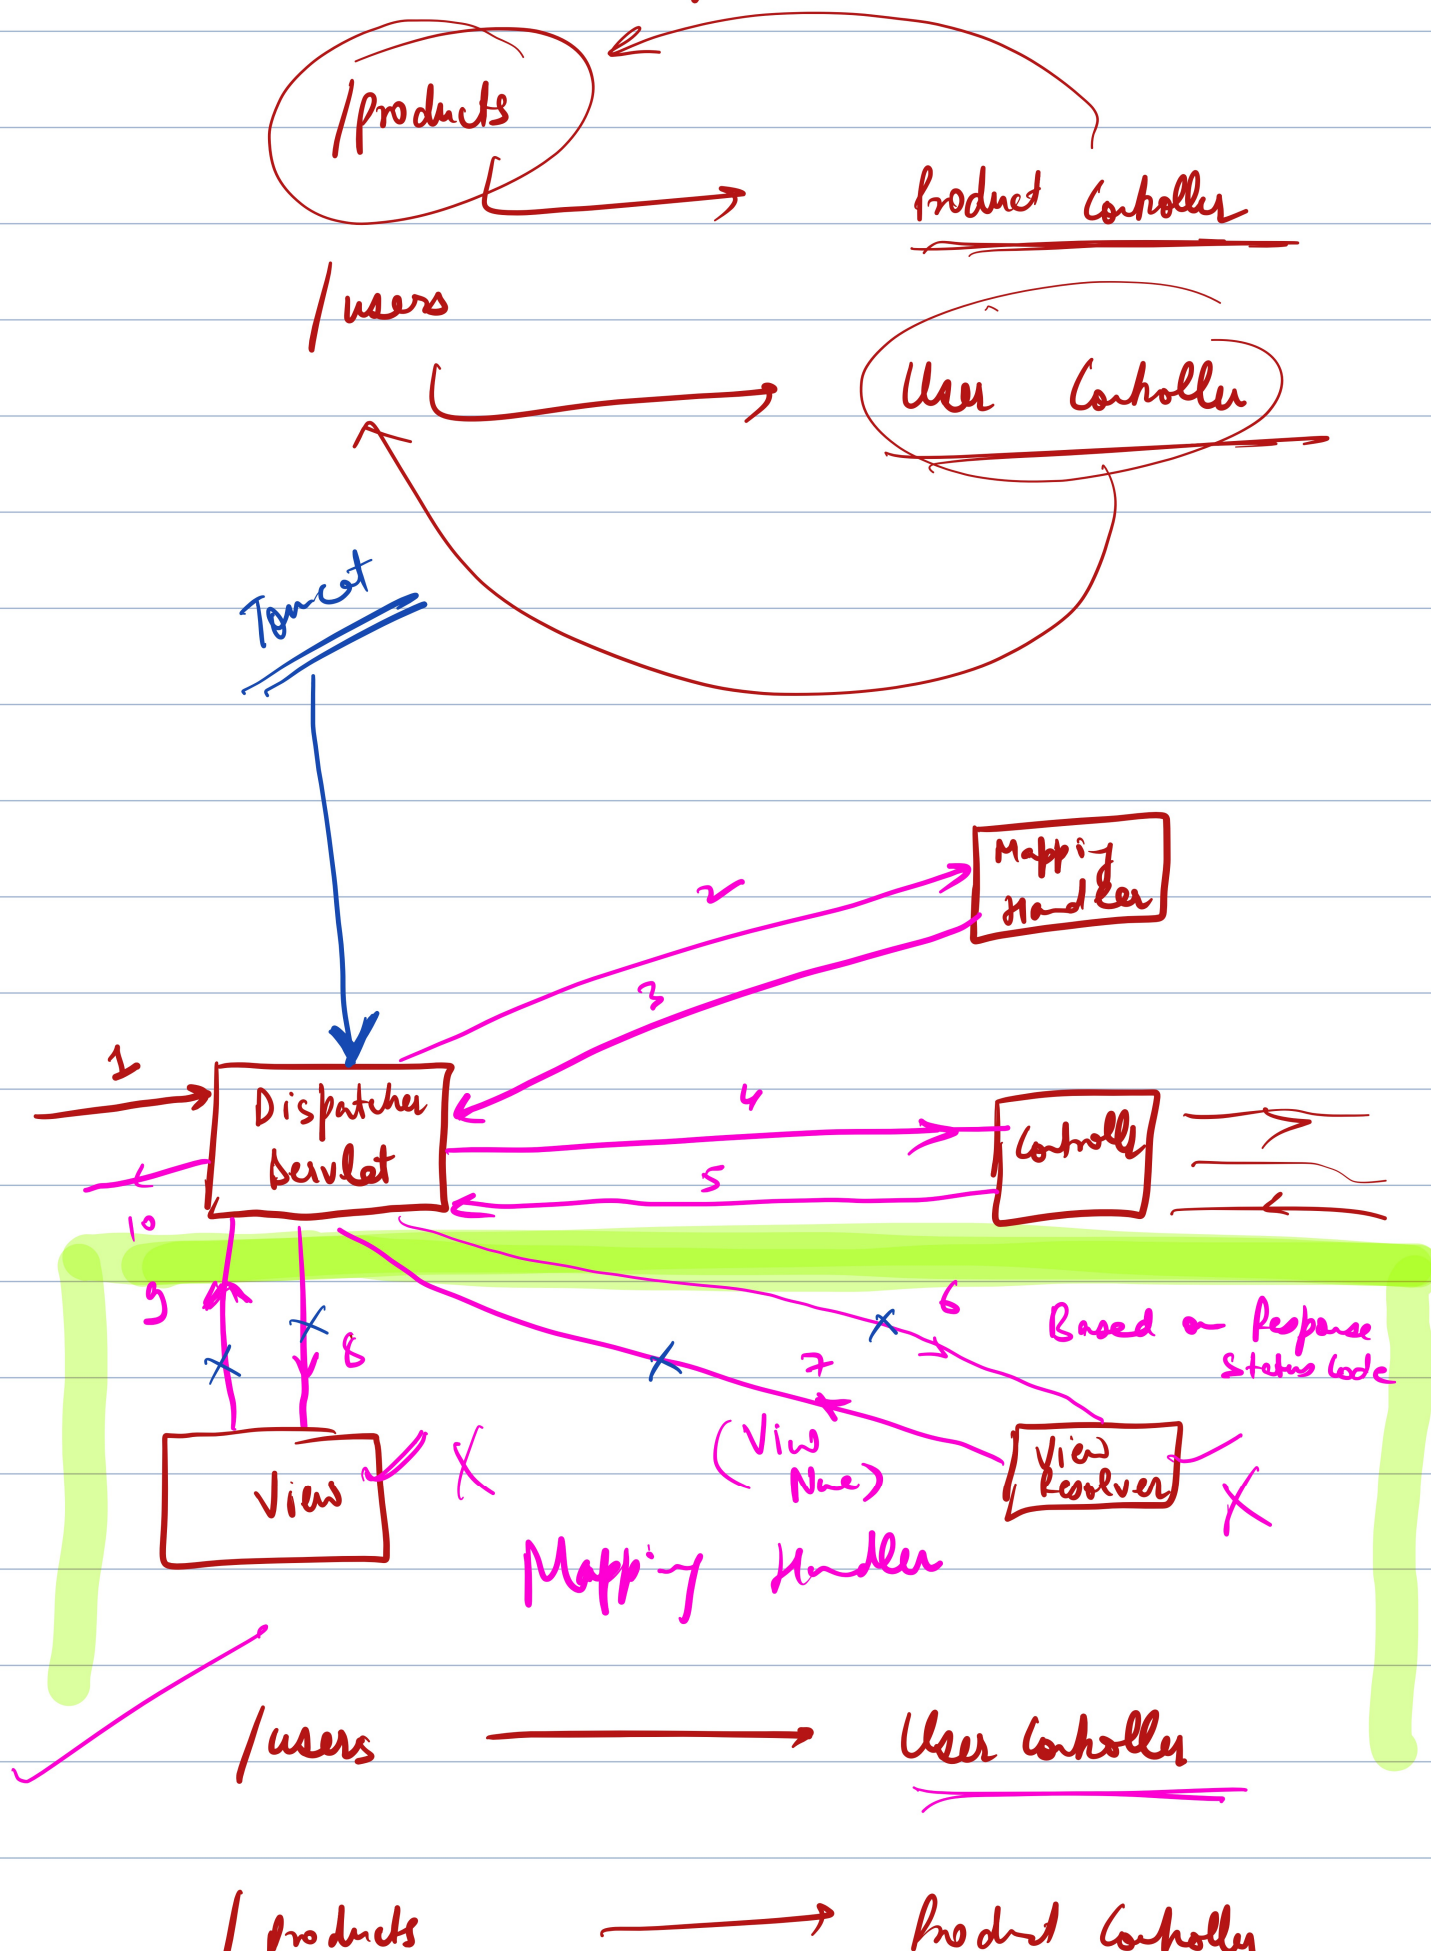 /products
Product Controller
/users
User Controller
Tomcat
Mapping
Handler
2
3
1
Dispatcher
Servlet
4
Controller
5
10
9
8
6
Based on Response
Status Code
7
(View
Name)
X
View
View
Resolver
X
Mapping Handler
/users User Controller
/products Product Controller